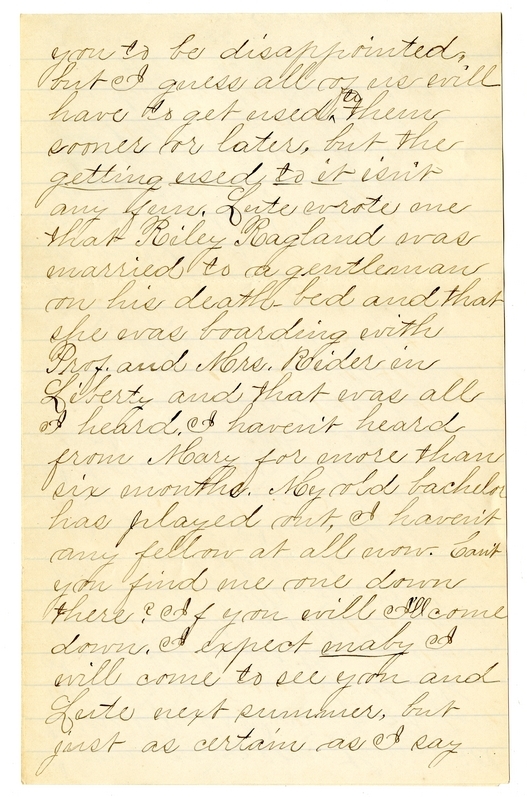 you to be disappointed,
but I guess all of us will
have to get used to them
sooner or later, but the
getting used to it isn't
any fun. Lute wrote me
that Riley Ragland was
married to a gentleman
on his death-bed and that
she was boarding with
Prof. and Mrs. Rider in
Liberty and that was all
I heard. I haven't heard
from Mary for more than
six months. My old bachelor
has played out, I haven't
any fellow at all now. Can't
you find me one down
there? If you will I'll come
down. I expect maby I
will come to see you and
Lute next summer, but
just as certain as I say